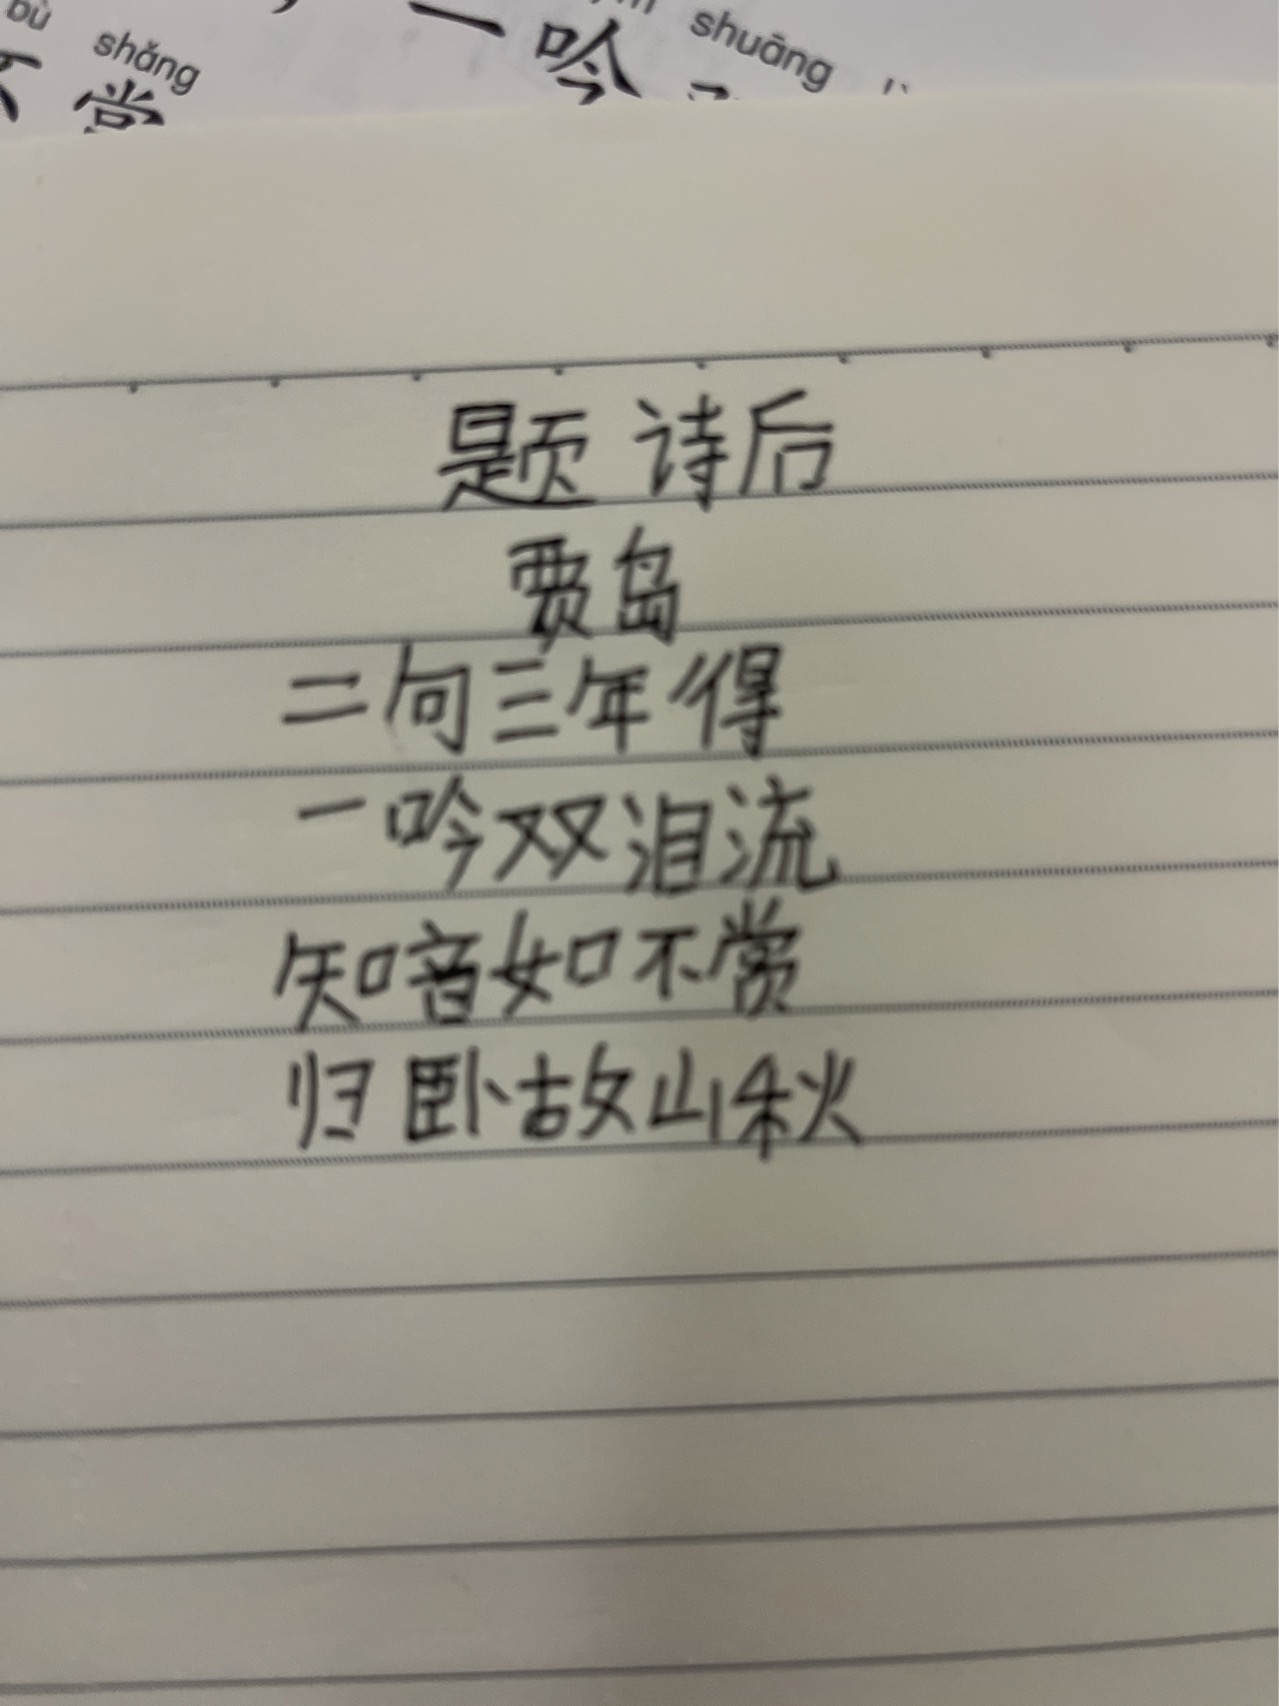 bù shǎng shuāng
赏 一吟
题诗后
贾岛
二句三年得
一吟双泪流
知音如不赏
归卧故山秋